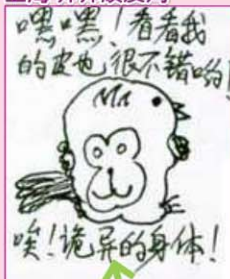 嘿嘿！看看我
的皮也很不错哟！
唉！诡异的身体！